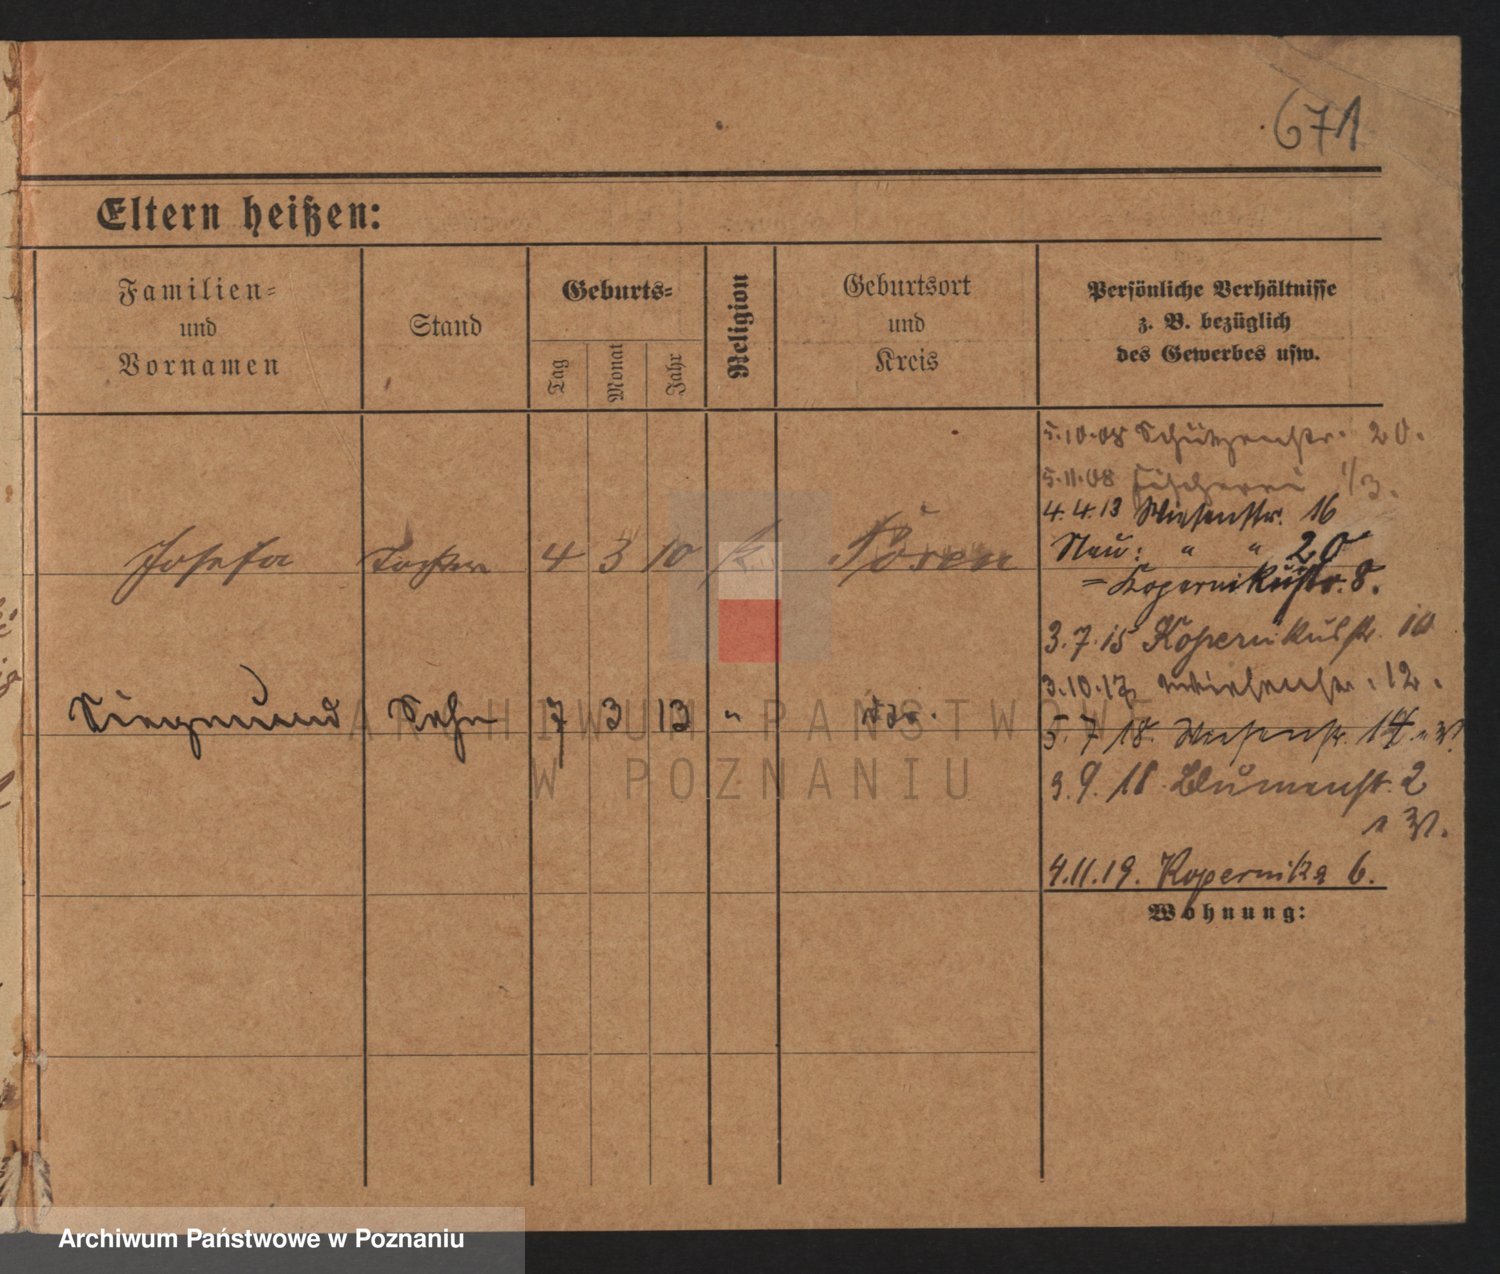 671
Eltern heißen:
Familien=
und
Vornamen
Stand
Geburts=
Tag
Monat
Jahr
Religion
Geburtsort
und
Kreis
Persönliche Verhältnisse
z. B. bezüglich
des Gewerbes usw.
5.10.08 Schützenstr. 20.
5.11.08 Fischerei 1/3.
4.4.13 Wiesenstr. 16
Neu: " " 20
= Kopernikusstr. 8.
Josefa Tochter 4 3 10 k Posen
3.7.15 Kopernikusstr. 10
3.10.17 Wiesenstr. 12.
Siegmund Sohn 7 3 13 "
5.7.18. Wiesenstr. 14
3.9.18 Blumenstr. 2
4.11.19. Kopernika 6.
Wohnung:
ARCHIWUM PAŃSTWOWE
W POZNANIU
Archiwum Państwowe w Poznaniu